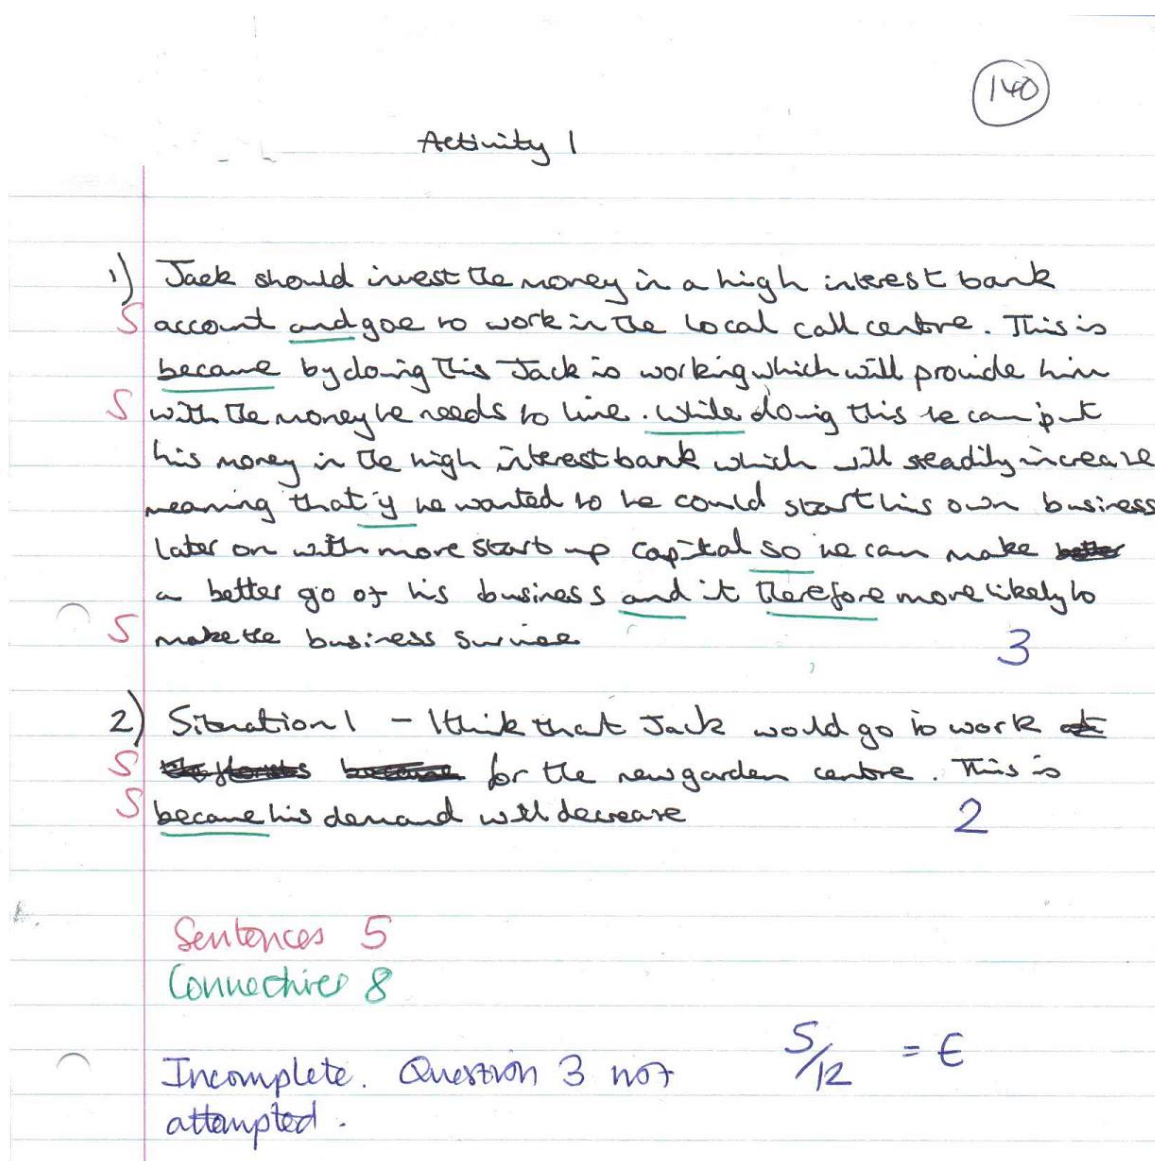 140
Activity 1
1) Jack should invest the money in a high interest bank
S account and goe to work in the local call centre. This is
because by doing this Jack is working which will provide him
S with the money he needs to live. While doing this he can put
his money in the high interest bank which will steadily increase
meaning that if he wanted to he could start his own business
later on with more start up capital so he can make better
a better go of his business and it therefore more likely to
S make the business survive
3
2) Situation 1 - I think that Jack would go to work at
S the florists because for the new garden centre. This is
S because his demand will decrease
2
Sentences 5
Connectives 8
Incomplete. Question 3 not
attempted.
5/12 = E